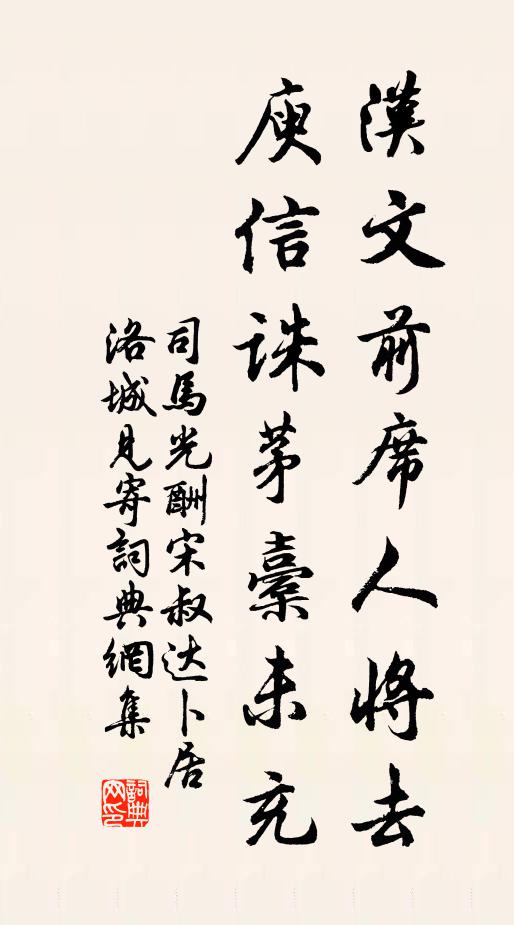 漢文前席人將去
庾信誅茅橐未充
司馬光酬宋叔达卜居
洛城見寄詞典網集
詞典
网印